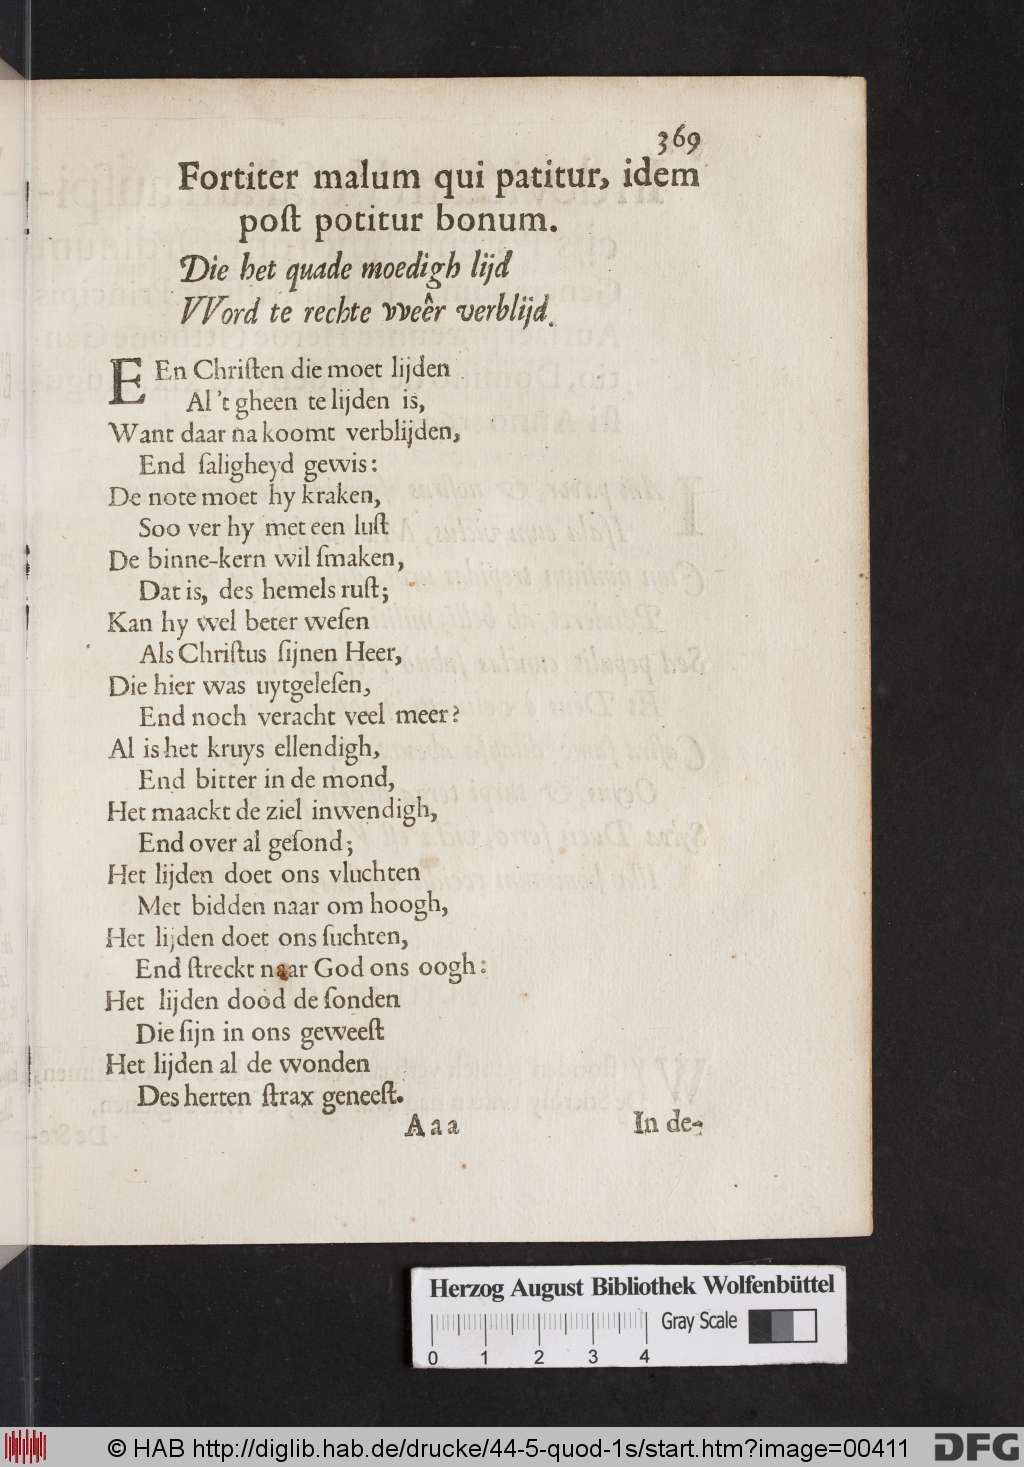 369
Fortiter malum qui patitur, idem
poſt potitur bonum.
Die het quade moedigh lijd
VVord te rechte vveêr verblijd.
EEn Chriſten die moet lijden
Al 't gheen te lijden is,
Want daar na koomt verblijden,
End ſaligheyd gewis:
De note moet hy kraken,
Soo ver hy met een luſt
De binne-kern wil ſmaken,
Dat is, des hemels ruſt;
Kan hy wel beter weſen
Als Chriſtus ſijnen Heer,
Die hier was uytgeleſen,
End noch veracht veel meer?
Al is het kruys ellendigh,
End bitter in de mond,
Het maackt de ziel inwendigh,
End over al geſond;
Het lijden doet ons vluchten
Met bidden naar om hoogh,
Het lijden doet ons ſuchten,
End ſtreckt naar God ons oogh:
Het lijden dood de ſonden
Die ſijn in ons geweeſt
Het lijden al de wonden
Des herten ſtrax geneeſt.
Aaa In de-
Herzog August Bibliothek Wolfenbüttel
Gray Scale
0 1 2 3 4
© HAB http://diglib.hab.de/drucke/44-5-quod-1s/start.htm?image=00411
DFG